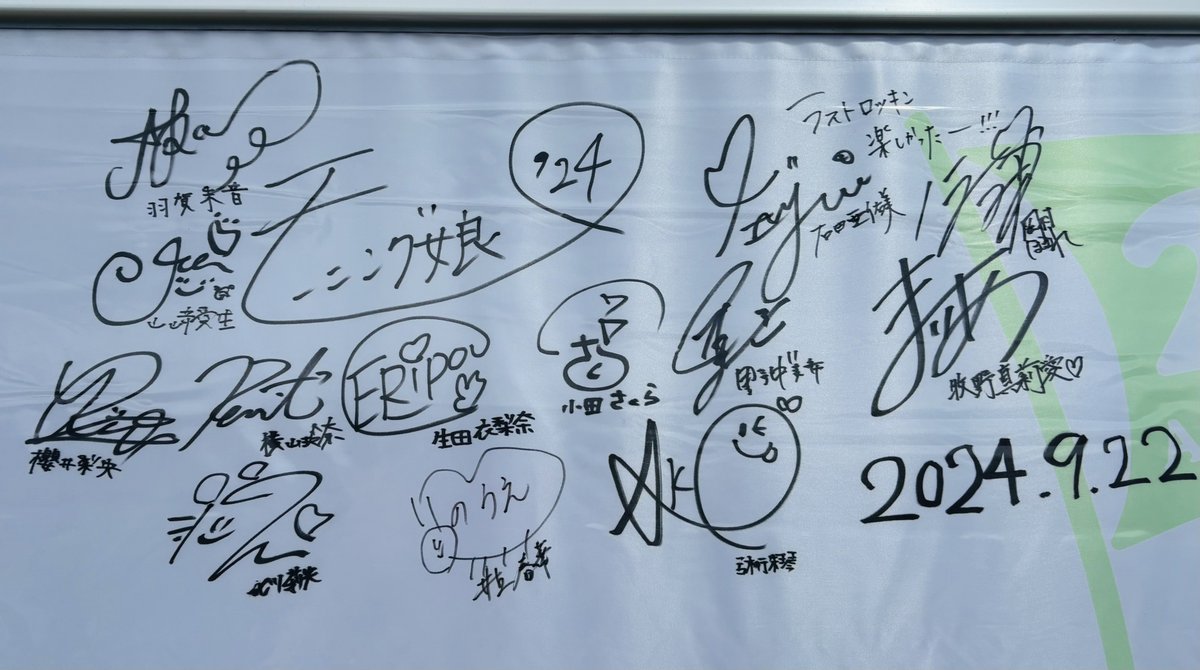 羽賀朱音
モーニング娘
'24
ラストロッキン
楽しかったー!!!
石田亜佑美
岡村ほまれ
山﨑愛生
櫻井梨央
横山玲奈
ERIPO
生田衣梨奈
さく
小田さくら
野中美希
牧野真莉愛♡
北川莉央
のうえ
井上春華
弓桁朱琴
2024.9.22